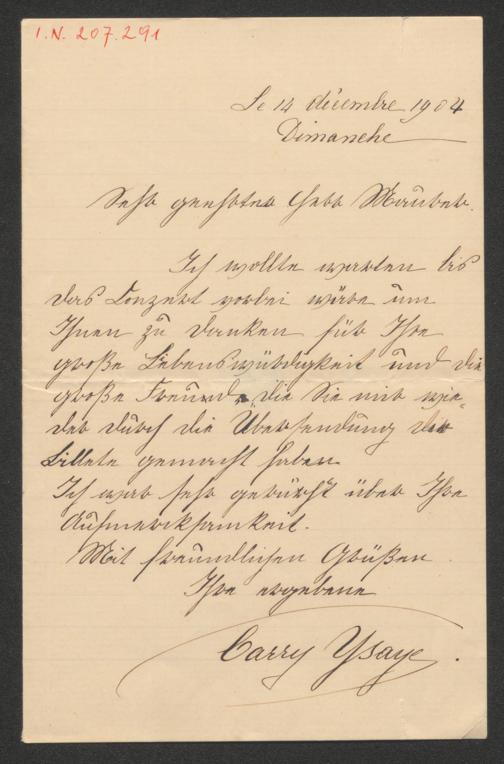 I.N. 207.291
Le 14 décembre 1904
Dimanche
Sehr geehrter Herr Mauber.
Ich wollte warten bis
das Konzert vorbei wäre um
Ihnen zu danken für Ihre
große Liebenswürdigkeit und die
große Freunde die Sie mir wie-
der durch die Übersendung der
Billete gemacht haben
Ich war sehr gerührt über Ihre
Aufmerksamkeit.
Mit freundlichen Grüßen
Ihre ergebene
Carry Ysaye.